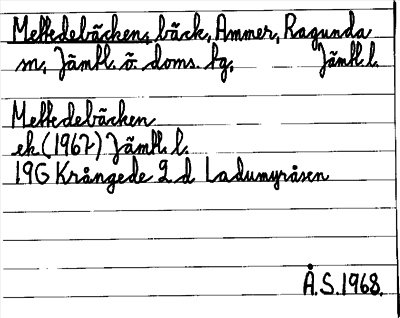 Meftedebäcken, bäck, Ammer, Ragunda
sn, Jämtl. ö. doms. tg, Jämtl. l.
Meftedebäcken
ek (1967) Jämtl. l.
19G Krångede 2 d Ladumyråsen
Å.S. 1968.